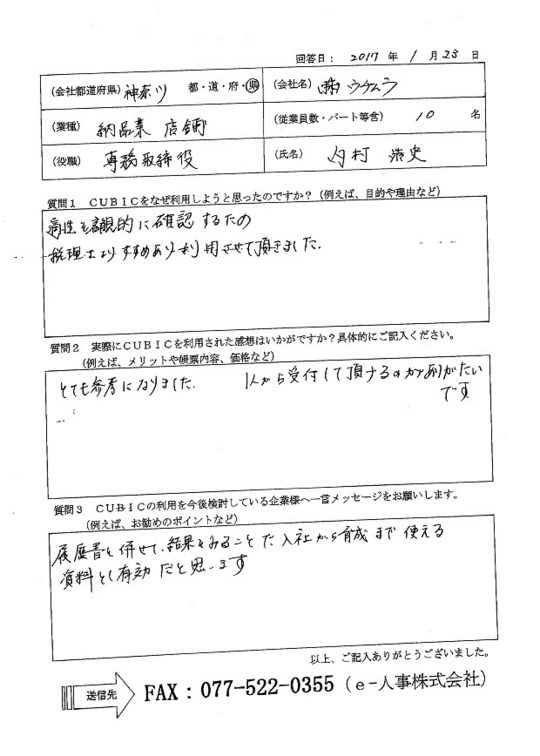 回答日： 2017 年 1 月 23 日
（会社都道府県） 神奈川 都・道・府・県
（会社名） ㈱ウチムラ
（業種） 納品業 店舗
（従業員数・パート等含） 10 名
（役職） 専務取締役
（氏名） 内村 浩史
質問１ ＣＵＢＩＣをなぜ利用しようと思ったのですか？（例えば、目的や理由など）
適性を客観的に確認するため
税理士よりすすめあり利用させて頂きました.
質問２ 実際にＣＵＢＩＣを利用された感想はいかがですか？具体的にご記入ください。
（例えば、メリットや帳票内容、価格など）
とても参考になりました. 1人から受付して頂けるのがありがたい
です
質問３ ＣＵＢＩＣの利用を今後検討している企業様へ一言メッセージをお願いします。
（例えば、お勧めのポイントなど）
履歴書と併せて、結果をみることで入社から育成まで使える
資料として有効だと思います
以上、ご記入ありがとうございました。
送信先 FAX：077-522-0355（ｅ－人事株式会社）